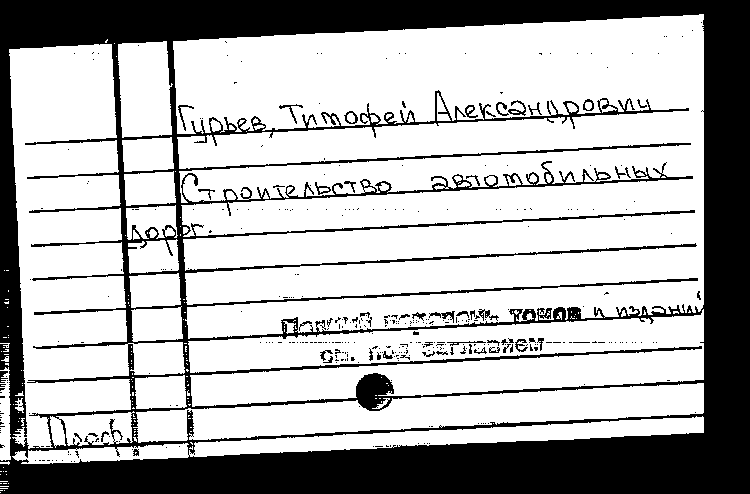 Гурьев, Тимофей Александрович
Строительство автомобильных
дорог.
Полный перечень томов и изданий
см. под заглавием
Проф.